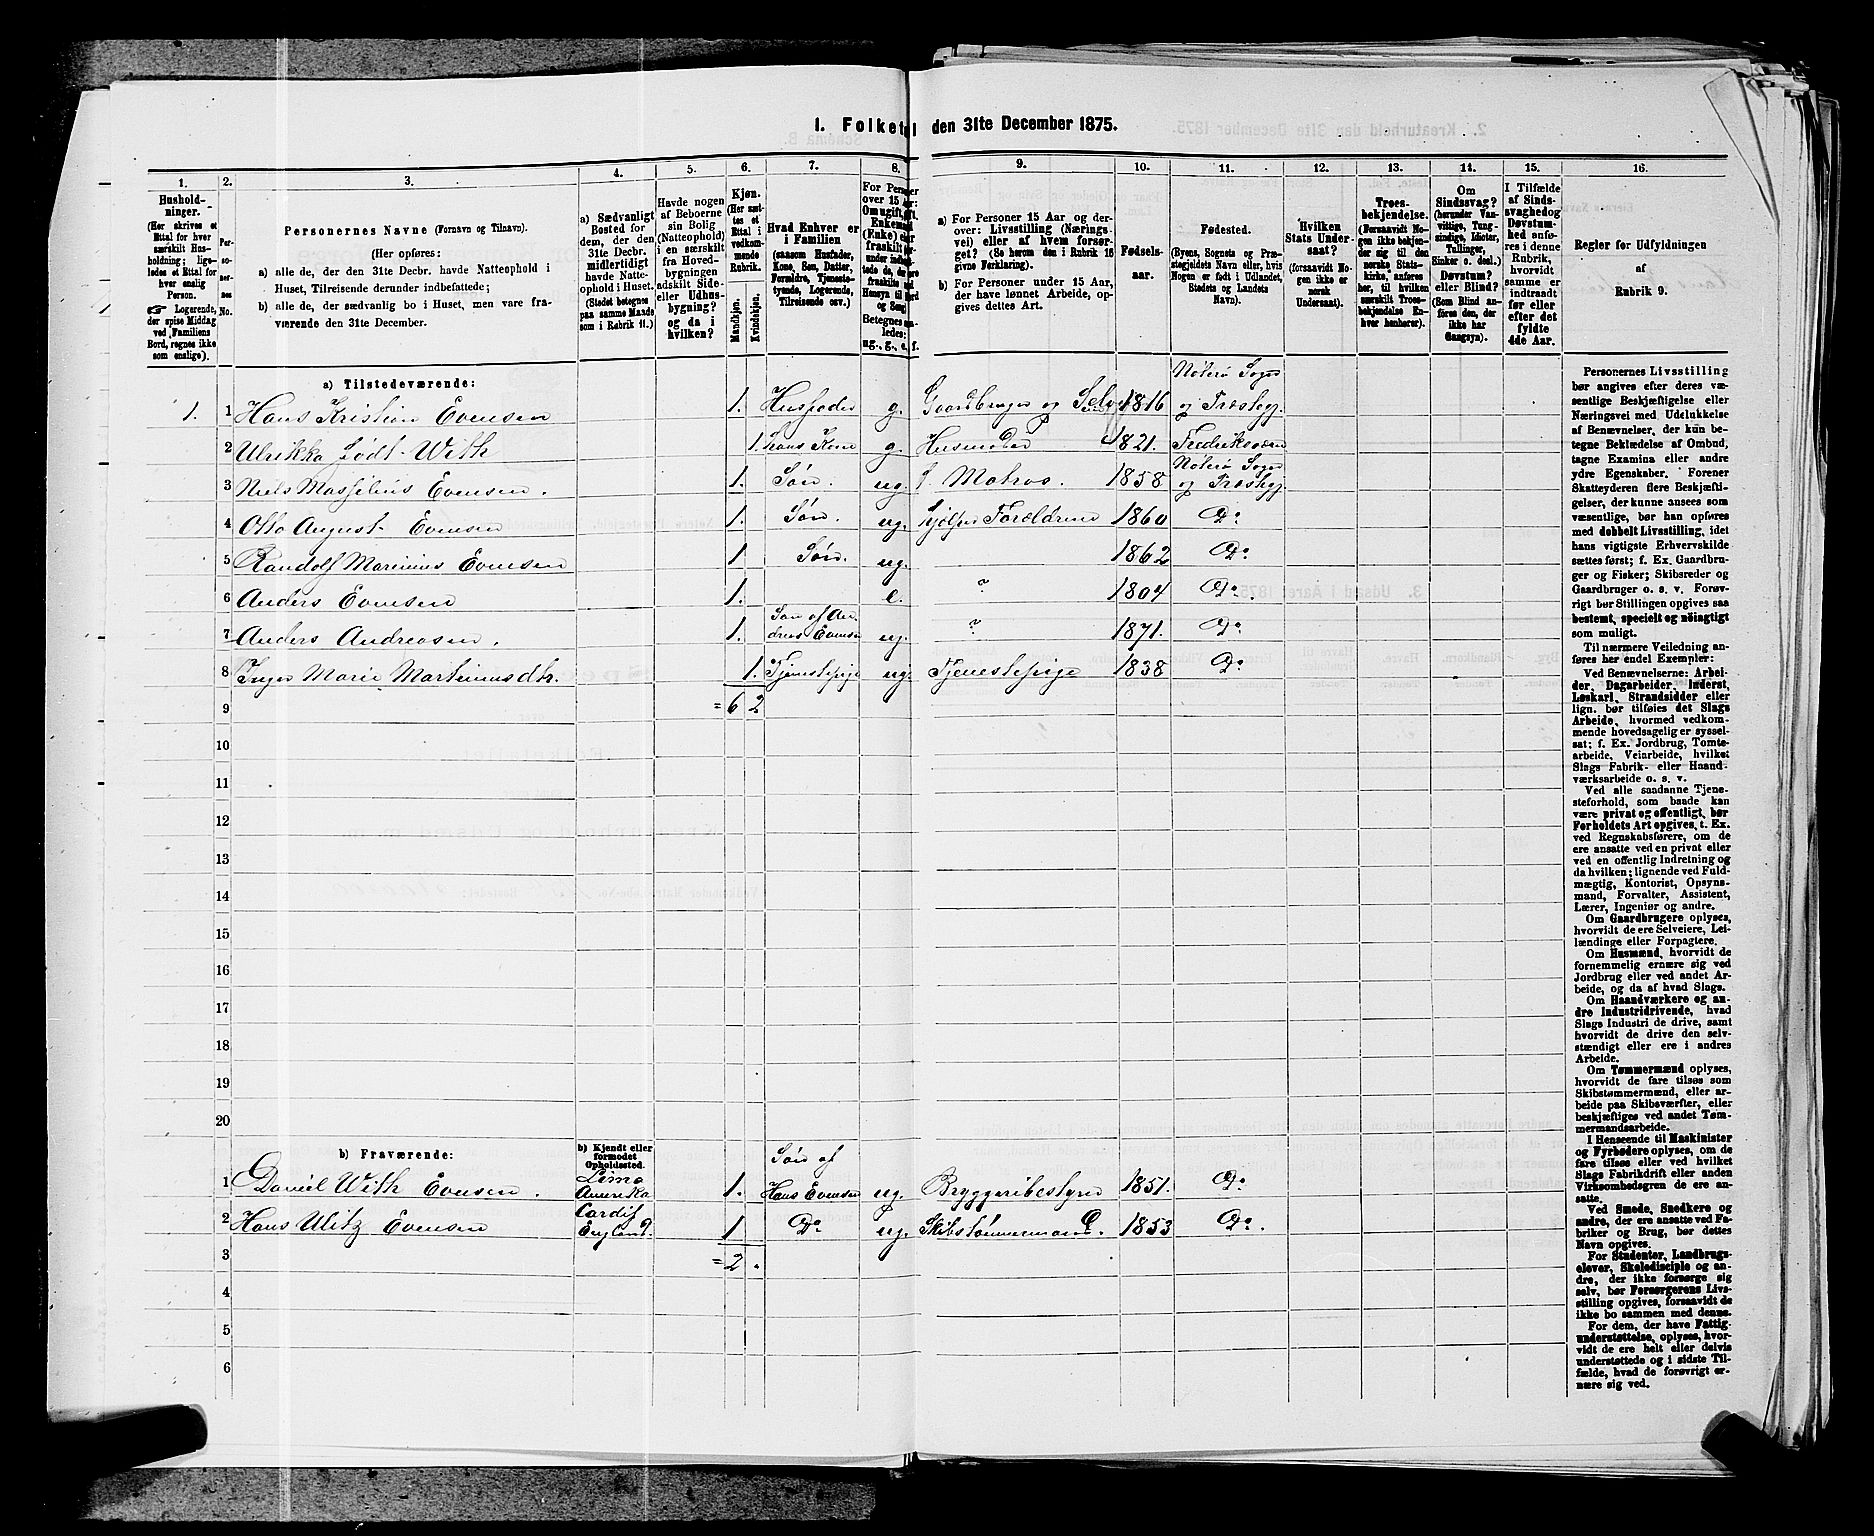 1. Folketal den 31te December 1875.
1. 2. 3. 4. 5. 6. 7. 8. 9. 10. 11. 12. 13. 14. 15. 16.
Hushold-
ninger.
(Her skrives et
Ettal for hver
særskilt Hus-
holdning; lige-
ledes et Ettal for
hver enslig
Person.
☞ Logerende,
der spise Middag
ved Familiens
Bord, regnes ikke
som enslige).
Per-
so-
ner-
nes
No.
Personernes Navne (Fornavn og Tilnavn).
(Her opføres:
a) alle de, der den 31te Decbr. havde Natteophold i
Huset, Tilreisende derunder indbefattede;
b) alle de, der sædvanlig bo i Huset, men vare fra-
værende den 31te December.
a) Sædvanligt
Bosted for
dem, der den
31te Decbr.
midlertidigt
havde Natte-
ophold i Huset.
(Stedet betegnes
paa samme Maade
som i Rubrik 11.)
Havde nogen
af Beboerne
sin Bolig
(Natteophold)
i en særskilt
fra Hoved-
bygningen
adskilt Side-
eller Udhus-
bygning?
og da i
hvilken?
Kjøn.
(Her sæt-
tes et
Ettal i
vedkom-
mende
Rubrik.
Mandkjøn.
Kvindekjøn.
Hvad Enhver er
i Familien
(saasom Husfader,
Kone, Søn, Datter,
Forældre, Tjeneste-
tyende, Logerende,
Tilreisende osv.)
For Personer
over 15 Aar:
Betegnes
ledes:
ug., g., e. f.
a) For Personer 15 Aar og der-
over: Livsstilling (Nærings-
vei) eller af hvem forsør-
get? (Se herom den i Rubrik 16
givne Forklaring).
b) For Personer under 15 Aar,
der have lønnet Arbeide, op-
gives dettes Art.
Fødsels-
aar.
Fødested.
(Byens, Sognets og Præ-
stegjeldets Navn eller, hvis
Nogen er født i Udlandet,
Stedets og Landets
Navn).
Hvilken
Stats Under-
saat?
(forsaavidt No-
gen ikke er
norsk
Undersaat).
Troes-
bekjendelse.
(Forsaavidt No-
gen ikke bekjen-
der sig til den
norske Stats-
kirke, anføres
her, til hvilken
særskilt Troes-
bekjendelse En-
hver henhører).
Om
Sindssvag?
(herunder Van-
vittige, Tung-
sindige, Idioter,
Tullinger,
Sinker o. desl.)
Døvstum?
eller Blind?
(Som Blind an-
føres den, der
ikke har
Gangsyn).
I Tilfælde
af Sinds-
svaghed og
Døvstum-
hed anfø-
res i denne
Rubrik,
hvorvidt
samme er
indtraadt
før eller
efter det
fyldte
4de Aar.
Regler for Udfyldningen
af
Rubrik 9.
a) Tilstedeværende:
1. 1 Hans Kristian Evensen 1. Husfader g. Gaardbruger og 1816 Nøterø Sogn og Præstegj.
2 Ulrikka født With 1. hans Kone g. Husmoder 1821. Fredriksværn
3 Niels Masselius Evensen. 1. Søn. ug. Matros. 1858 Nøterø Sogn og Præstegj.
4 Otto August Evensen 1. Søn. ug. hjælper Forældrene 1860 Do
5 Randolf Marinius Evensen 1 Søn. ug. 1862 Do
6 Anders Evensen 1. e. ? 1804 Do.
7 Anders Andreasen. 1. Søn af Andreas Evensen ug. ? 1871. Do
8 Inger Marie Martiniusdtr. 1. Tjenestepige ug. Tjenestepige 1838 Do
9 = 6 2
10
11
12
13
14
15
16
17
18
19
20
b) Fraværende:
b) Kjendt eller
formodet
Opholdssted.
1 Daniel With Evensen. Lima Amerika 1. Søn af Hans Evensen ug. Bryggeribestyrer 1851. Do
2 Hans Ulitz Evensen Cardif England. 1 Do ug. Skibstømmermand. 1853 Do.
3 = 2.
4
5
6
Personernes Livsstilling
bør angives efter deres væ-
sentlige Beskjæftigelse eller
Næringsvei med Udelukkelse
af Benævnelser, der kun be-
tegne Beklædelse af Ombud,
tagne Examina eller andre
ydre Egenskaber. Forener
Skatteyderen flere Beskjæfti-
gelser, der kunne ansees som
væsentlige, bør han opføres
med dobbelt Livsstilling, idet
hans vigtigste Erhvervskilde
sættes først; f. Ex. Gaardbru-
ger og Fisker; Skibsreder og
Gaardbruger o. s. v. Forøv-
rigt bør Stillingen opgives saa
bestemt, specielt og nöiagtigt
som muligt.
Til nærmere Veiledning an-
føres her endel Exempler:
Ved Benævnelserne: Arbei-
der, Dagarbeider, Inderst,
Løskarl, Strandsidder eller
lign. bør tilføies det Slags
Arbeide, hvormed vedkom-
mende hovedsagelig er syssel-
sat; f. Ex. Jordbrug, Tomte-
arbeide, Veiarbeide, hvilket
Slags Fabrik- eller Haand-
værksarbeide o. s. v.
Ved alle saadanne Tjene-
steforhold, som baade kan
være privat og offentligt, bør
Forholdets Art opgives, t. Ex.
ved Regnskabsførere, om de
ere ansatte ved en privat eller
ved en offentlig Indretning og
da hvilken; lignende ved Fuld-
mægtig, Kontorist, Opsyns-
mand, Forvalter, Assistent,
Lærer, Ingeniør og andre.
Om Gaardbrugere oplyses,
hvorvidt de ere Selveiere, Lei-
lændinge eller Forpagtere.
Om Husmænd, hvorvidt de
fornemmelig ernære sig ved
Jordbrug eller ved andet Ar-
beide, og da af hvad Slags.
Om Haandværkere og an-
dre Industridrivende, hvad
Slags Industri de drive, samt
hvorvidt de drive den selv-
stændigt eller ere i andres
Arbeide.
Om Tømmermænd oplyses,
hvorvidt de fare tilsøs som
Skibstømmermænd, eller ar-
beide paa Skibsværfter, eller
beskjæftiges ved andet Tøm-
mermandsarbeide.
I Henseende til Maskinister
og Fyrbødere oplyses, om de
fare tilsøs eller ved hvilket
Slags Fabrikdrift eller anden
Virksomhedsgren de ere an-
satte.
Ved Smede, Snedkere og
andre, der ere ansatte ved Fa-
briker og Brug, bør dettes
Navn opgives.
For Studenter, Landbrugs-
elever, Skoledisciple og an-
dre, der ikke forsørge sig
selv, bør Forsørgerens Livs-
stilling opgives, forsaavidt de
ikke bo sammen med denne.
For dem, der have Fattig-
understøttelse, oplyses, hvor-
vidt de ere helt eller delvis
understøttede og i sidste Til-
fælde, hvad de forøvrigt er-
nære sig ved.